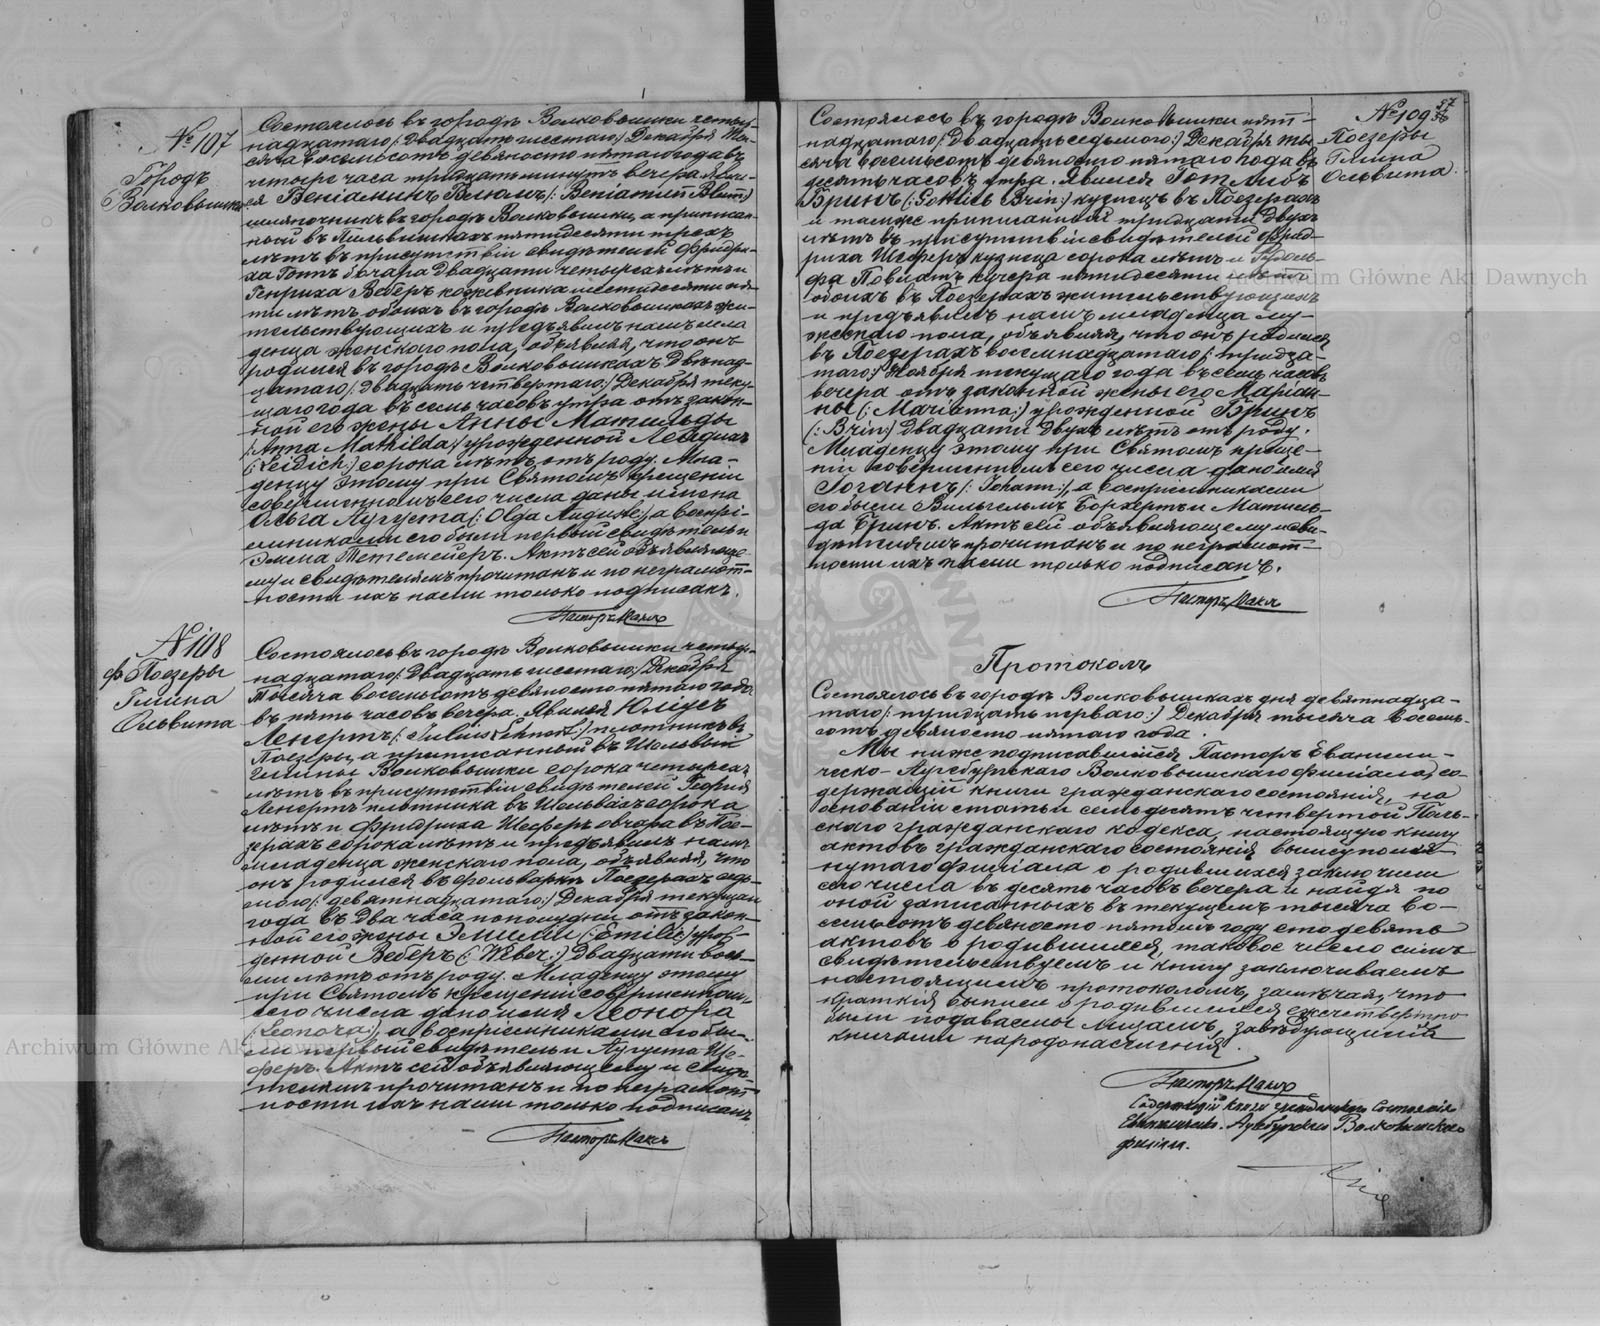 № 107
Городъ
Волковышки
Состоялось въ городѣ Волковышки четыр-
надцатаго /: двадцать шестаго:/ Декабря Ты-
сяча восемьсотъ девяносто пятаго года въ
четыре часа тридцать минутъ вечера яви-
ся Беніаминъ Блюмъ (: Beniamin Blum:)
въ городѣ Волковышки, а приписан-
ной въ Пильвишкахъ пятидесяти трехъ
лѣтъ въ присутствіи свидѣтелей Фридри-
ха Готъ овчара двадцати четырехъ лѣтъ и
Генриха Веберъ кожевника шестидесяти пя-
ти лѣтъ обоихъ въ городѣ Волковышкахъ жи-
тельствующихъ и предъявилъ намъ мла
денца женскаго пола, объявляя, что онъ
родился въ городѣ Волковышкахъ двѣнад-
цатаго /: двадцать четвертаго:/ Декабря теку-
щаго года въ семь часовъ утра отъ закон-
ной его жены Анны Матильды
(: Anna Mathilda:) урожденной Лейдихъ
(: Leidich:) сорока лѣтъ отъ роду. Мла-
денцу этому при Святомъ крещеніи
совершенномъ сего числа даны имена
Ольга Августа (: Olga Auguste:), а воспрі-
емниками его были первый свидѣтель и
Эмма Тетемейеръ. Актъ сей объявляюще-
му и свидѣтелямъ прочитанъ и по неграмот-
ности ихъ нами только подписанъ.
Пасторъ
№ 108
ф. Поезеры
Гмина
Ольвита
Состоялось въ городѣ Волковышки четыр-
надцатаго /: двадцать шестаго:/ Декабря
Тысяча восемьсотъ девяносто пятаго года
въ пять часовъ вечера. Явился Юлiусъ
Ленертъ (: Julius Lehnert:) плотникъ въ
Поезеры, а приписанный въ
гмины Волковышки сорока четырехъ
лѣтъ въ присутствіи свидѣтелей
Ленертъ плотника въ сорока
лѣтъ и Фридриха Шеферъ овчара въ Пое-
зерахъ сорока лѣтъ и предъявилъ намъ
младенца женскаго пола, объявляя, что
онъ родился въ фольваркѣ Поезерахъ седь-
маго /: девятнадцатаго:/ Декабря текущаго
года въ два часа пополудни отъ закон-
ной его жены Эмиліи (: Emilie:) урож-
денной Веберъ (: Weber:) двадцати вось-
ми лѣтъ отъ роду. Младенцу этому
при Святомъ крещеніи совершенномъ
сего числа дано имя Леонора
(: Leonora:), а воспріемниками его бы-
ли первый свидѣтель и Августа Ше-
феръ. Актъ сей объявляющему и свидѣ-
телямъ прочитанъ и по неграмот-
ности ихъ нами только подписанъ
Пасторъ
№ 109
Поезеры
Гмина
Ольвита
Состоялось въ городѣ Волковышки пят-
надцатаго /: двадцать седьмого:/ Декабря ты
сяча восемьсотъ девяносто пятаго года въ
десять часовъ утра. Явился Готлибъ
Бринъ (: Gottlieb Brin:) кузнецъ въ Поезерахъ
и тамже приписанный тридцати двухъ
лѣтъ въ присутствіи свидѣтелей Фрид-
риха Шеферъ кузнеца сорока лѣтъ и Рудоль-
фа кучера пятидесяти лѣтъ
обоихъ въ Поезерахъ жительствующихъ
и предъявилъ намъ младенца му-
жескаго пола, объявляя, что онъ родился
въ Поезерахъ восемнадцатаго /: тридца-
таго:/ Ноября текущаго года въ семь часовъ
вечера отъ законной жены его Маріан-
ны (: Marianna:) урожденной Бринъ
(: Brin:) двадцати двухъ лѣтъ отъ роду.
Младенцу этому при Святомъ креще-
ніи совершенномъ сего числа дано имя
Іоганнъ (: Johann:), а воспріемниками
его были Вильгельмъ Борхертъ и Матиль-
да Бринъ. Актъ сей объявляющему и сви-
дѣтелямъ прочитанъ и по неграмот-
ности ихъ нами только подписанъ.
Пасторъ
Протоколъ
Состоялось въ городѣ Волковышкахъ дня девятнадца-
таго /: тридцать перваго:/ Декабря тысяча восемь-
сотъ девяносто пятаго года.
Мы нижеподписавшійся Пасторъ Евангели-
ческо-Аугсбургскаго Волковышскаго филіала, со-
держащій книги гражданскаго состоянія, на
основаніи статьи семьдесятъ четвертой Поль-
скаго гражданскаго кодекса, настоящую книгу
актовъ гражданскаго состоянія вышеупомя-
нутаго филіала о родившихся заключили
сего числа въ десять часовъ вечера и найдя по
оной записанныхъ въ текущемъ тысяча во-
семьсотъ девяносто пятомъ году сто девять
актовъ о родившихся, таковое число симъ
свидѣтельствуемъ и книгу заключиваемъ
настоящимъ протоколомъ, замѣчая, что
краткія выписи о родившихся ежечетвертно
были подаваемы лицамъ, завѣдующимъ
книгами народонаселенія.
Пасторъ
Содержащій книги гражданскаго состоянія
Евангелическо-Аугсбургскаго Волковышскаго
филіала.
Archiwum Główne Akt Dawnych
Archiwum Główne Akt Dawnych